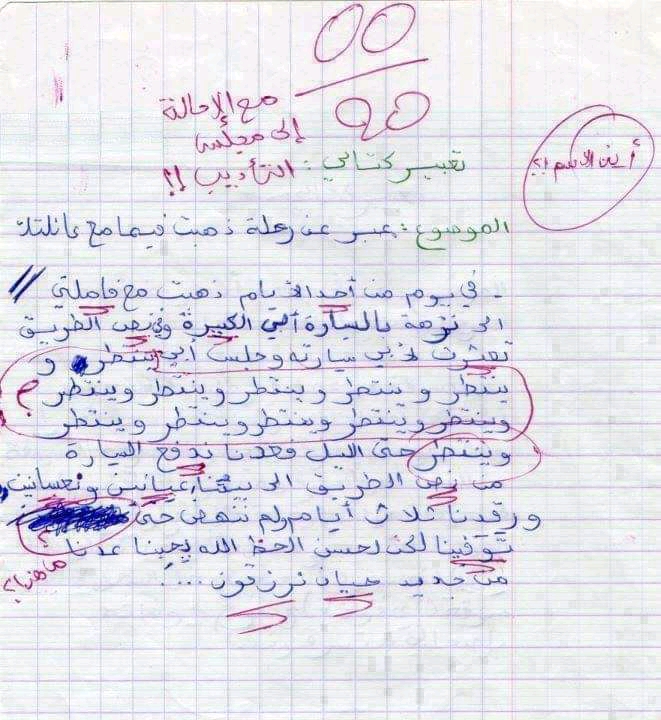 00
20
مع الإحالة
إلى مجلس
التأديب !!
أين الاسم !؟
تعبير كتابي:
الموضوع: عبر عن رحلة ذهبت فيها مع عائلتك
- في يوم من أحد الأيام ذهبت مع فاملتي
الى نزهة بالسيارة أبي الكبيرة وفي نص الطريق
تعثرت لأبي سيارته وجلس أبي ينتظر و
ينتظر و ينتظر و ينتظر و ينتظر وينتظر ؟
وينتظر وينتظر وينتظر وينتظر وينتظر
وينتظر حتى اليل فعدنا ندفع السيارة
من نص الطريق الى بيتنا عيانين ونعسانين
ورقدنا ثلاث أيام ولم ننهض حتى
توفينا لكن لحسن الحظ الله يحبنا عدنا ؟
ما هذا؟
من جديد حيان نرزقون ....